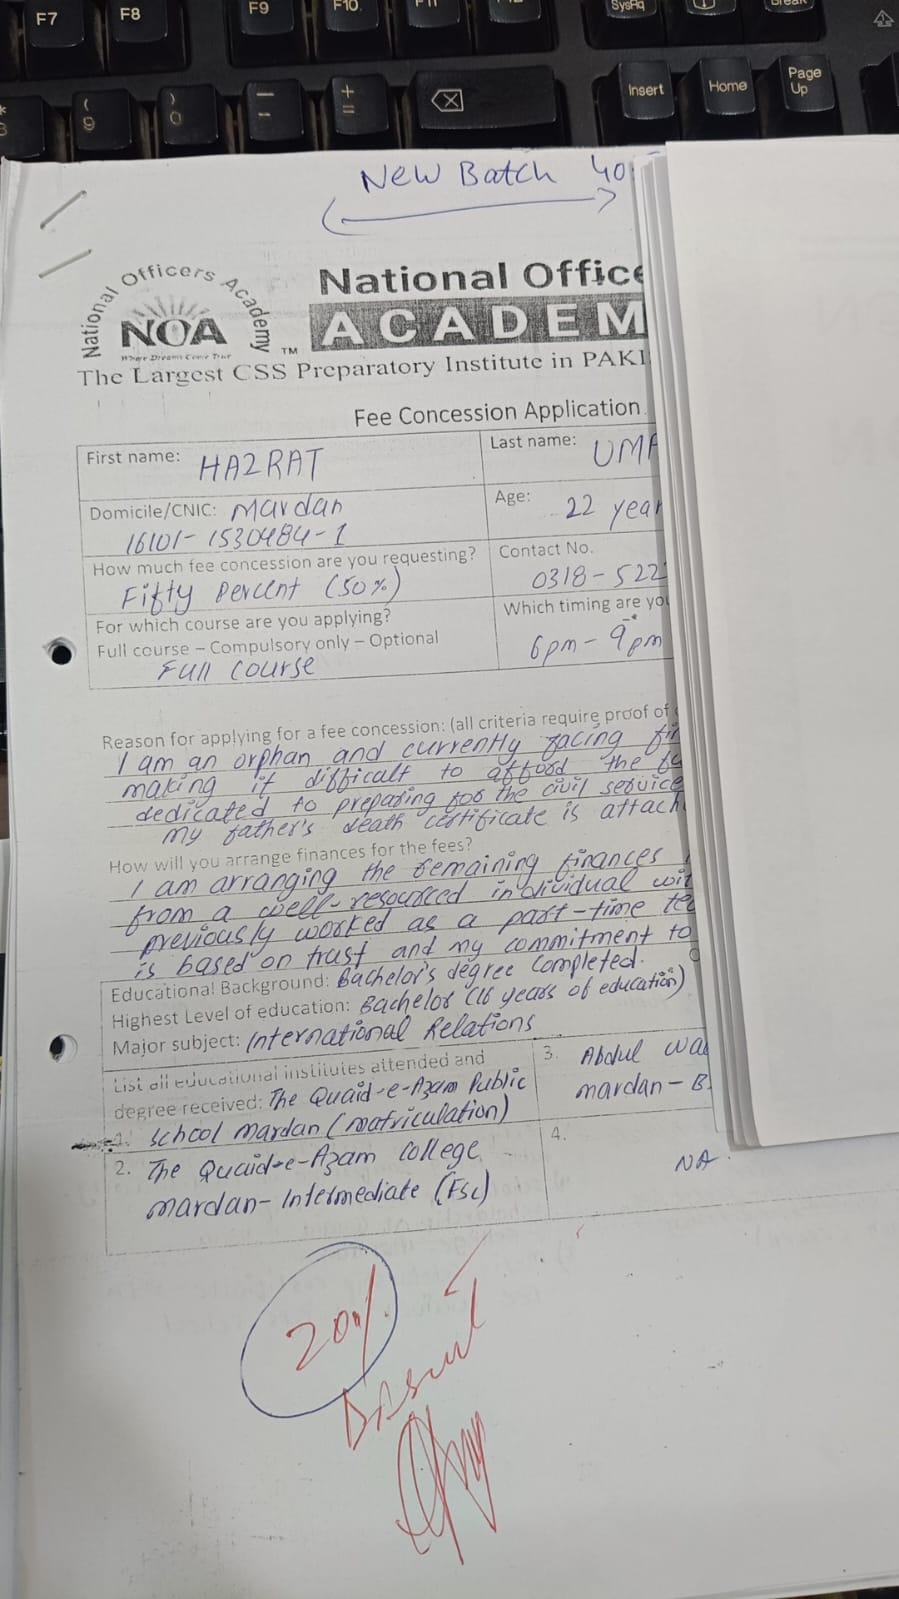 F7
F8
F9
F10
F11
SysRq
Break
(
9
)
0
—
-
+
=
Insert
Home
Page
Up
New Batch 40
National Officers Academy
NOA
Where Dreams Come True
TM
National Office
ACADEM
The Largest CSS Preparatory Institute in PAKI
Fee Concession Application
First name: HAZRAT
Last name: UMA
Domicile/CNIC: Mardan
16101-1530484-1
Age: 22 year
How much fee concession are you requesting?
Fifty Percent (50%)
Contact No.
0318-522
For which course are you applying?
Full course – Compulsory only – Optional
Full Course
Which timing are you
6pm-9pm
Reason for applying for a fee concession: (all criteria require proof of
I am an orphan and currently facing fi
making it difficult to afford the fe
dedicated to preparing for the civil service
my father's death certificate is attach
How will you arrange finances for the fees?
I am arranging the remaining finances
from a well-resourced individual wit
previously worked as a part-time tea
is based on trust and my commitment to
Educational Background: Bachelor's degree Completed.
Highest Level of education: Bachelor (16 years of education)
Major subject: International Relations
List all educational institutes attended and
degree received: The Quaid-e-Azam Public
1. School Mardan (matriculation)
2. The Quaid-e-Azam College
mardan- Intermediate (FSc)
3. Abdul Wa
mardan-B
4.
NA
20%